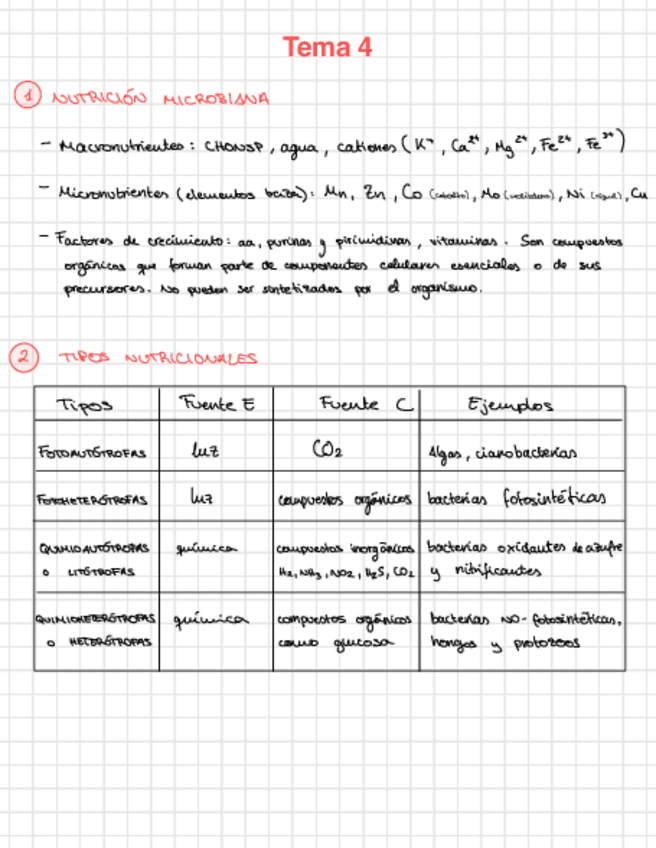 Tema 4
1 NUTRICIÓN MICROBIANA
- Macronutrientes: CHONSP, agua, cationes (K⁺, Ca²⁺, Mg²⁺, Fe²⁺, Fe³⁺)
- Micronutrientes (elementos traza): Mn, Zn, Co (cobalto), Mo (molibdeno), Ni (níquel), Cu
- Factores de crecimiento: aa, purinas y pirimidinas, vitaminas. Son compuestos
orgánicos que forman parte de componentes celulares esenciales o de sus
precursores. No pueden ser sintetizados por el organismo.
2 TIPOS NUTRICIONALES
Tipos Fuente E Fuente C Ejemplos
FOTOAUTÓTROFAS luz CO₂ Algas, cianobacterias
FOTOHETERÓTROFAS luz compuestos orgánicos bacterias fotosintéticas
QUIMIOAUTÓTROFAS química compuestos inorgánicos bacterias oxidantes de azufre
o LITÓTROFAS H₂, NH₃, NO₂, H₂S, CO₂ y nitrificantes
QUIMIOHETERÓTROFAS química compuestos orgánicos bacterias NO-fotosintéticas,
o HETERÓTROFAS como glucosa hongos y protozoos